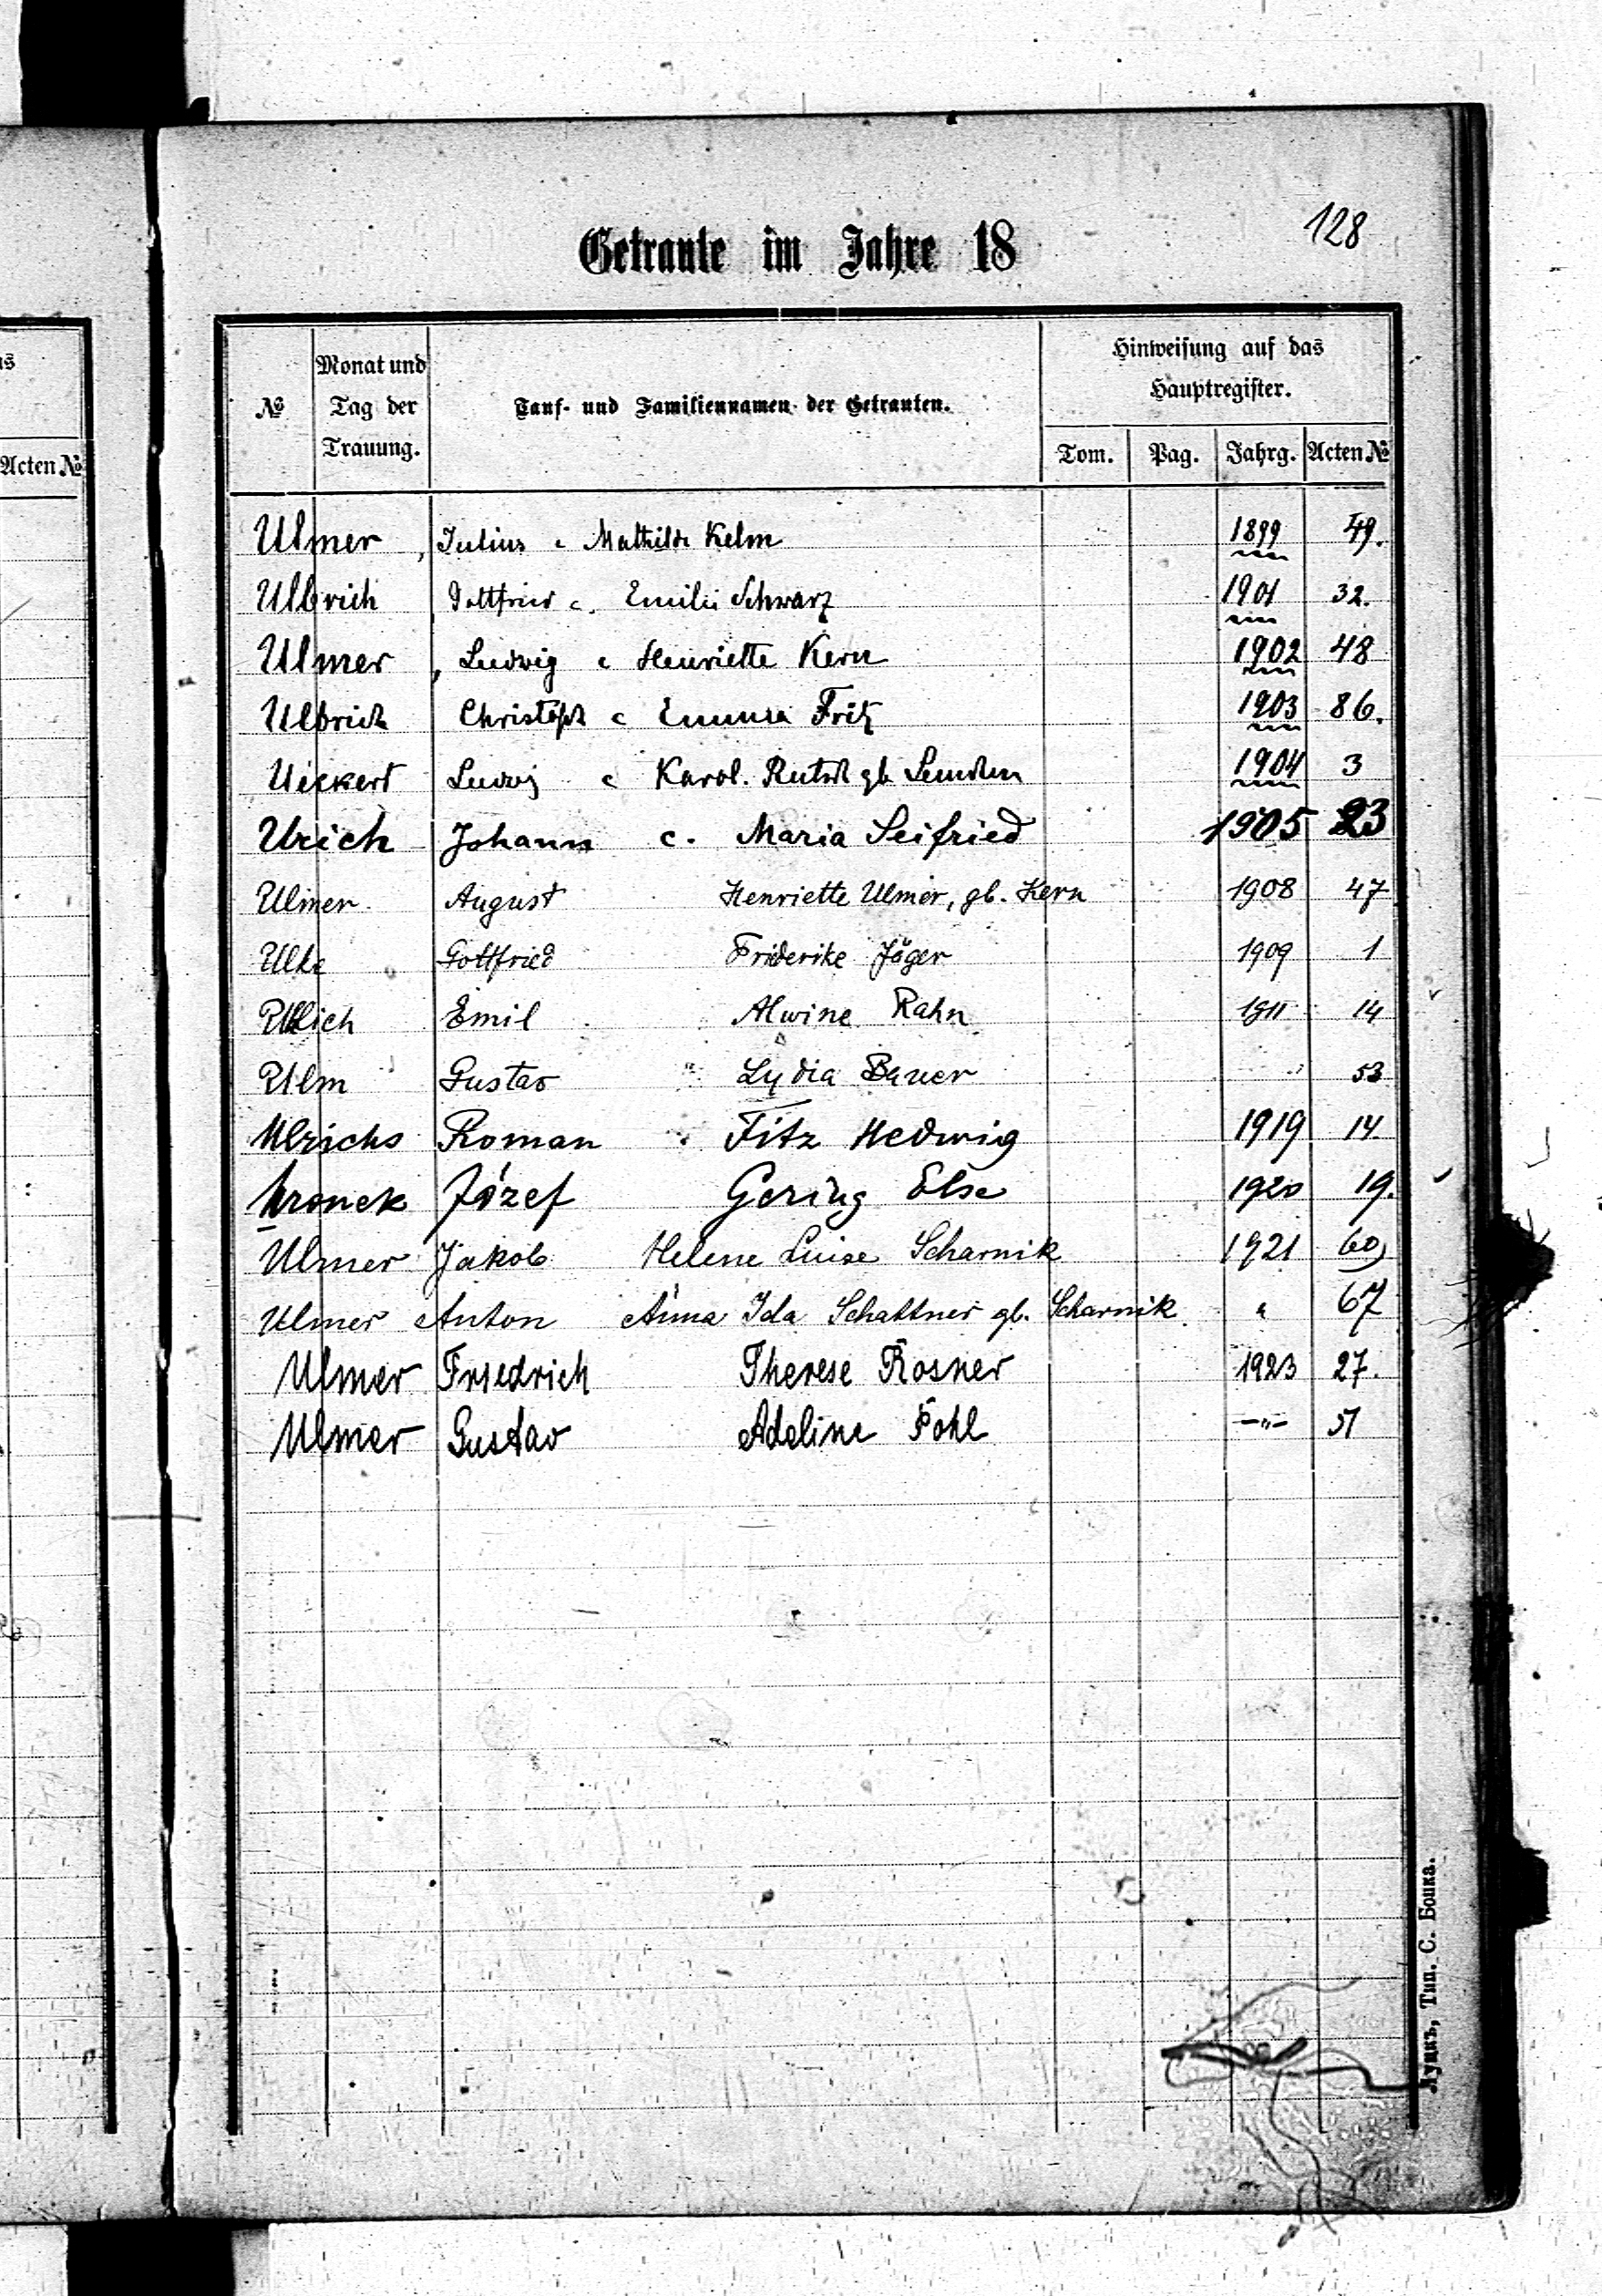 128
Getraute im Jahre 18
№
Monat und Tag der Trauung.
Tauf- und Familiennamen der Getrauten.
Hinweisung auf das Hauptregister.
Tom. Pag. Jahrg. Acten №
Acten №
Ulmer, Julius c Mathilde Kelm 1899 49.
Ulbrich, Gottfried c. Emilie Schwarz 1901 32.
Ulmer, Ludwig c Henriette Kern 1902 48
Ulbrich Christoph c Emma Fritz 1903 86.
Ueckert Ludwig c Karol. gb 1904 3
Urich Johann c. Maria Seifried 1905 23
Ulmer August Henriette Ulmer, gb. Kern 1908 47
Ulke Gottfried Friderike Jäger 1909 1
Ullich Emil Alwine Rahn 1911 14
Ulm Gustav Lydia Bauer " 53
Ulrichs Roman Fitz Hedwig 1919 14.
Józef Gering Else 1920 19.
Ulmer Jakob Helene Luise Scharnik 1921 60
Ulmer Anton Anna Ida Schattner gb. Scharnik " 67
Ulmer Friedrich Therese Rosner 1923 27.
Ulmer Gustav Adeline Pohl —"— 51
Луцкъ, Тип. С. Боика.